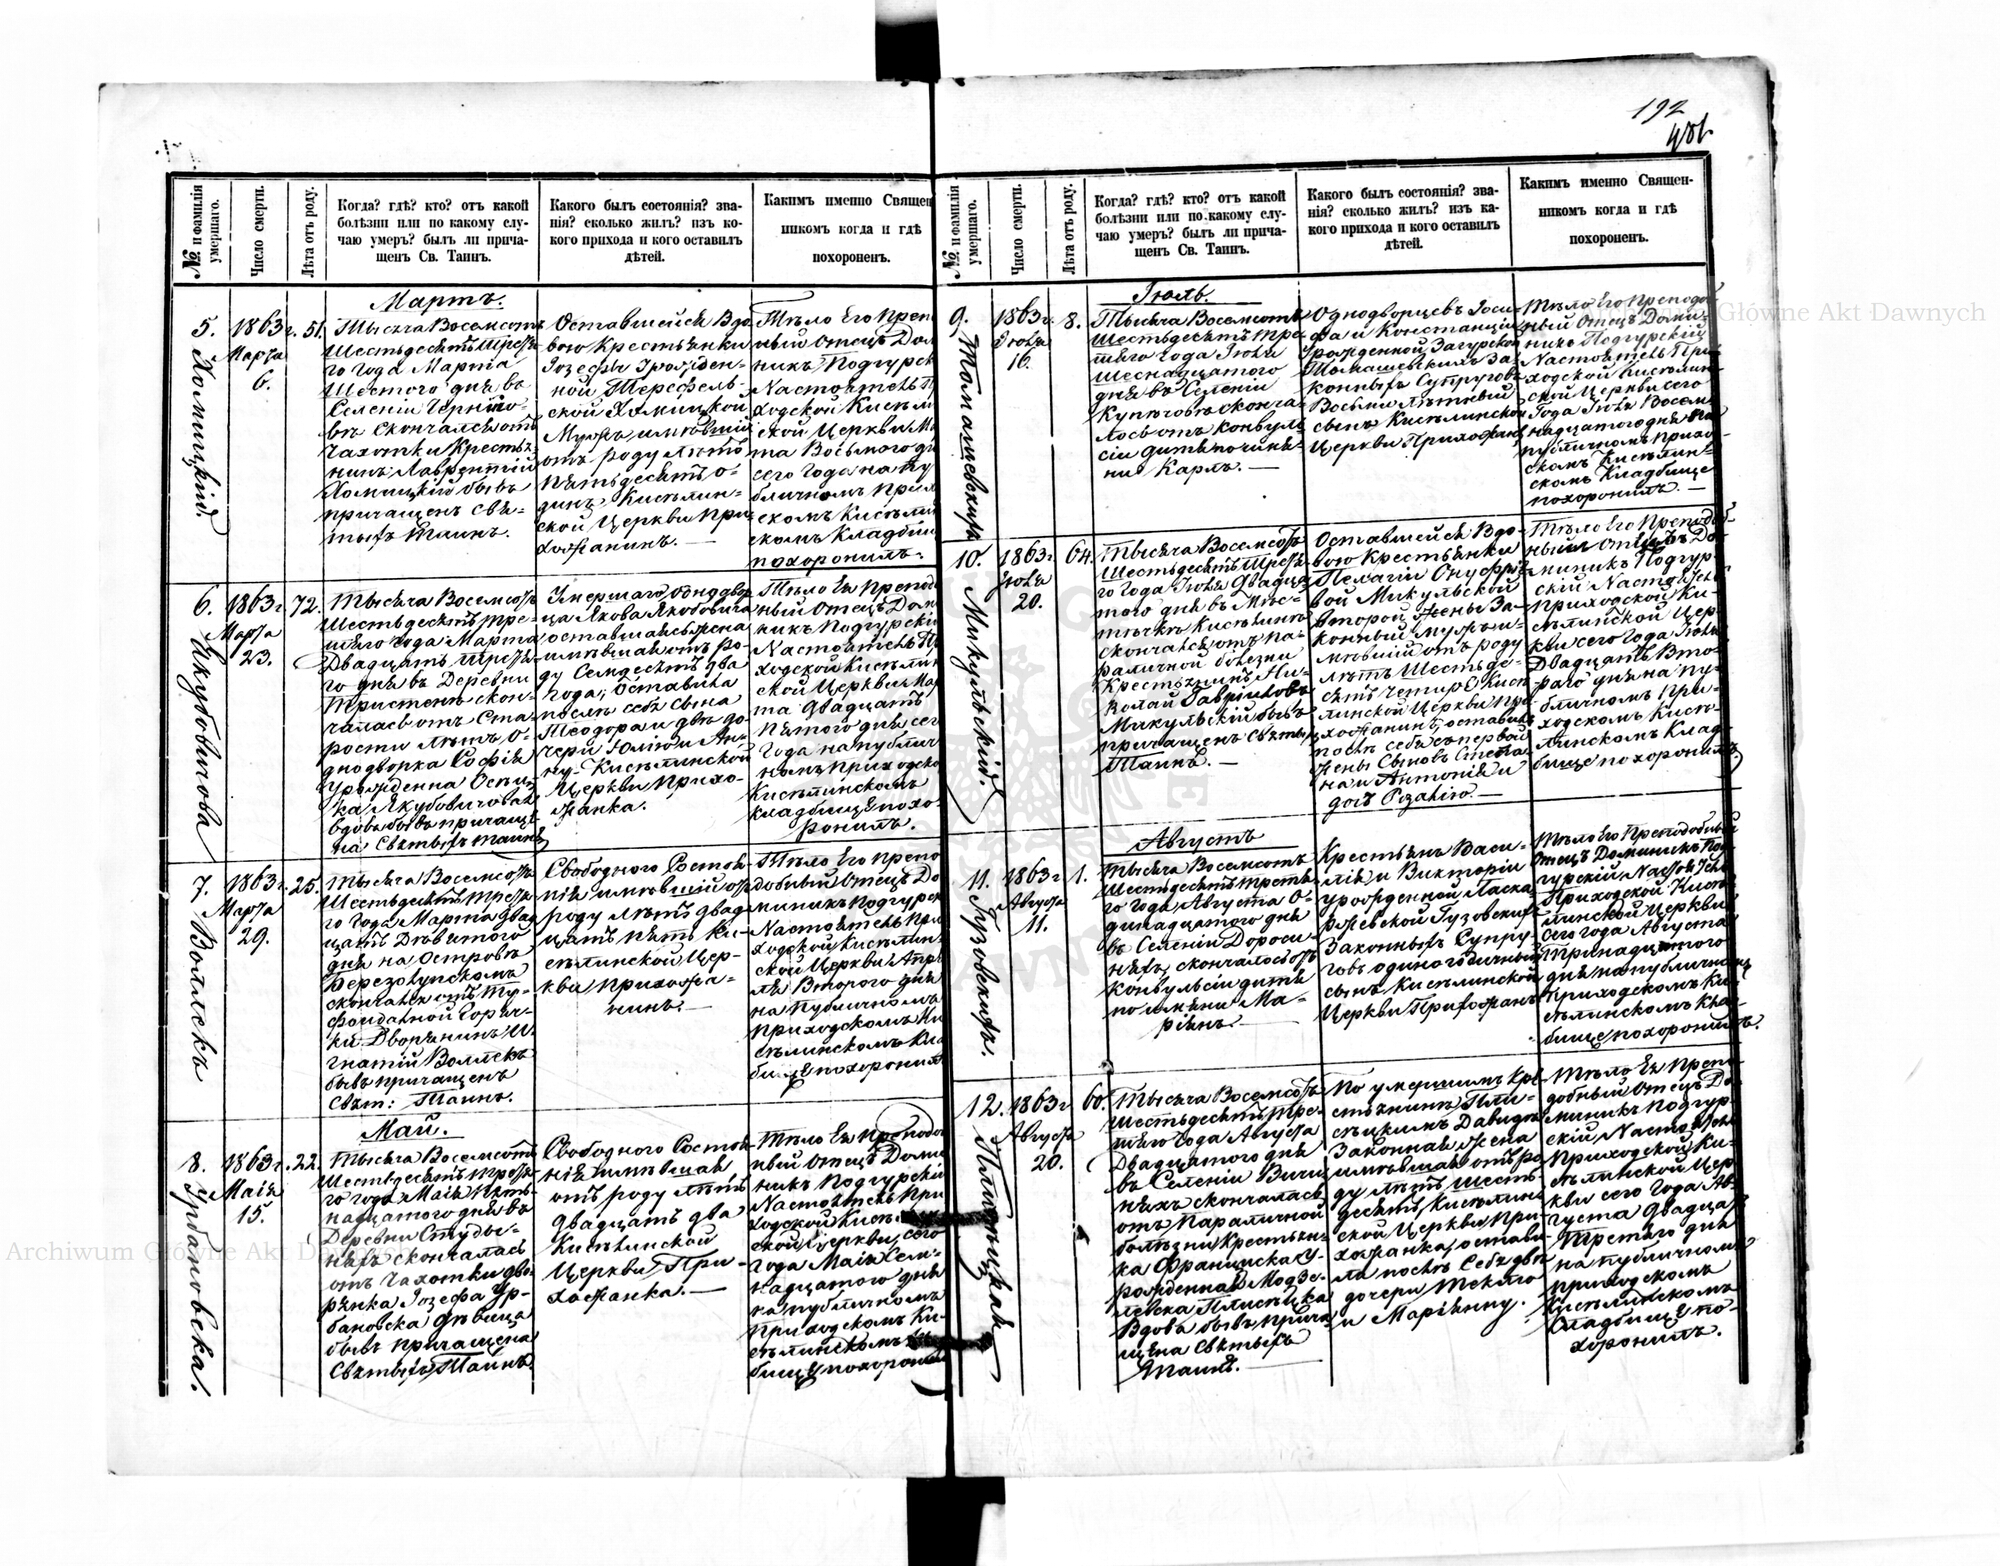 192
401
№ и фамилія умершаго.
Число смерти.
Лѣта отъ роду.
Когда? гдѣ? кто? отъ какой
болѣзни или по какому слу-
чаю умеръ? былъ ли прича-
щенъ Св. Таинъ.
Какого былъ состоянія? зва-
нія? сколько жилъ? изъ ко-
кого прихода и кого оставилъ
дѣтей.
Каким именно Священ
никомъ когда и гдѣ
похороненъ.
5. Хомицкій.
1863 г.
Марта
6.
51.
Мартъ.
Тысяча Восемсотъ
Шестьдесятъ Третья-
го года Марта
Шестого дня въ
Селеніи
скончался отъ
Чахотки Крестья-
нинъ Лаврентій
Хомицкій бывъ
причащенъ Свя-
тыхъ Таинъ.
Оставшейся Вдо-
вою Крестьянки
Іозефы Урожден-
ной
ской Хомицкой
Мужъ, имѣвшій
отъ роду лѣтъ
пятьдесятъ о-
динъ Кисѣлин-
ской Церкви При-
хожанинъ. —
Тѣло Его Препо
ный Отецъ Дом
никъ Подгурск
Настоятель Пр
ходской Кисѣли
ской Церкви Ма
та Восьмого дн
сего Года на Пу
бличномъ Прих
скомъ Кисѣлин
скомъ Кладбищ
похоронилъ.
6. Якубовичова
1863 г.
Марта
23.
72.
Тысяча Восемсотъ
Шестьдесятъ Тре-
тьяго Года Марта
Двадцать третья-
го дня въ Деревни
Тристенъ скон-
чалась отъ Ста-
рости лѣтъ О-
днодворка Софія
Урожденна
Якубовичова
вдова бывъ причаще-
на Святыхъ Таинъ
Умершаго Однодвор
ца Якова Якубовича
оставшаяся жена
имѣвшая отъ ро-
ду Семдесятъ два
года, Оставила
послѣ себя сына
Теодора и двѣ до-
чери Юлію и Ан-
ну — Кисѣлинской
Церкви Прихо-
жанка.
Тѣло Ея Препод
ный Отецъ Доми
никъ Подгурскі
Настоятель Пр
ходской Кисѣлин
ской Церкви Мар
та двадцать
пятого дня сег
Года на публич
номъ Приходско
Кисѣлинскомъ
кладбище похо-
ронилъ.
7. Воллекъ
1863 г.
Марта
29.
25.
Тысяча Восемсотъ
Шестьдесятъ Третья-
го Года Марта двад-
цать Девятого
дня на Островѣ
Березолупскомъ
скончался отъ Ти-
фоидальной Горяч-
ки Дворянинъ И-
гнатій Воллекъ
бывъ причащенъ
Свят: Таинъ.
Свободного Состоя-
нія имѣвшій отъ
роду лѣтъ двад-
цать пять Ки-
сѣлинской Цер-
кви прихожа-
нинъ. —
Тѣло Его Препо
добный Отецъ До
миникъ Подгурск
Настоятель При
ходской Кисѣлин
ской Церкви Апрѣ
ля Второго дня
на Публичномъ
Приходскомъ Ки
сѣлинскомъ Кла
бище похоронилъ
8. Урбановска.
1863 г.
Маія
15.
22.
Май.
Тысяча Восемсотъ
Шестьдесятъ Третья-
го года Маія Пят-
надцатого дня въ
Деревни Студы-
няхъ скончалась
отъ Чахотки дво-
рянка Іозефа Ур-
бановска Дѣвица
бывъ причащена
Святыхъ Таинъ.
Свободного Состоя
нія имѣвшая
отъ роду лѣтъ
двадцать два
Кисѣлинской
Церкви При-
хожанка. —
Тѣло Ея Преподоб
ный Отецъ Доми
никъ Подгурскій
Настоятель При
ходской Кисѣ
ской Церкви сего
года Маія Сем-
надцатого дня
на публичномъ
Приходскомъ Ки-
сѣлинскомъ
бище похоронилъ
№ и фамилія умершаго.
Число смерти.
Лѣта отъ роду.
Когда? гдѣ? кто? отъ какой
болѣзни или по какому слу-
чаю умеръ? былъ ли прича-
щенъ Св. Таинъ.
Какого былъ состоянія? зва-
нія? сколько жилъ? изъ ка-
кого прихода и кого оставилъ
дѣтей.
Какимъ именно Священ-
никомъ когда и гдѣ
похороненъ.
9. Томашевскихъ
1863 г.
Іюля
16.
8.
Іюль.
Тысяча Восемсотъ
Шестьдесятъ Тре-
тьяго Года Іюля
Шеснадцатого
дня въ Селеніи
Купичовѣ сконча-
лось отъ Конвуль-
сіи дитя по имя-
ни Карлъ. —
Однодворцевъ Іоси-
фа и Констанціи
Урожденной Загурской
Томашевскихъ За-
конныхъ Супруговъ
Восьми лѣтній
сынъ Кисѣлинской
Церкви Прихожан
Тѣло Его Преподоб
ный Отецъ Доми-
никъ Подгурскій
Настоятель При-
ходской Кисѣлин-
ской Церкви сего
Года Іюля Восем-
надцатого дня на
публичномъ Прихо-
скомъ Кисѣлин-
скомъ Кладбище
похоронилъ. —
10. Микульскій.
1863 г.
Іюля
20.
64.
Тысяча Восемсотъ
Шестьдесятъ Третья-
го Года Іюля Двадца-
того дня въ Мѣс-
течкѣ Кисѣлинѣ
скончался отъ Па-
раличной болезни
Крестьянинъ Ни-
колай Гавриловъ
Микульскій бывъ
причащенъ Святыхъ
Таинъ. —
Оставшейся Вдо-
вою Крестьянки
Пелагіи Онуфріе-
вой Микульской
второй жены За-
конный мужъ и-
мѣвшій отъ роду
лѣтъ Шестьде-
сятъ четыре Кисѣ
линской Церкви При
хожанинъ, оставилъ
послѣ себя съ первой
жены Сыновъ Степа-
на и Антонія и
дочь Розалію. —
Тѣло Его Преподоб-
ный Отецъ До-
миникъ Подгур-
скій Настоятель
Приходской Ки-
сѣлинской Цер-
кви сего Года Іюля
Двадцать Вто-
раго дня на пу-
бличномъ При-
ходскомъ Кисѣ-
линскомъ Клад-
бище похоронилъ.
11. Гузовскихъ.
1863 г.
Августа
11.
1.
Августъ
Тысяча Восемсотъ
Шестьдесятъ Третья-
го Года, Августа О-
динадцатого дня
въ Селеніи Дороси-
няхъ, скончалось отъ
Конвульсіи дитя
по имяни Ма-
ріянъ. —
Крестьянъ Васи-
лія и Викторіи
урожденной
Гузовскихъ
Законныхъ Супру-
говъ одиногодичный
сынъ Кисѣлинской
Церкви Прихожанъ
Тѣло Его Преподобный
Отецъ Доминикъ Под-
гурскій Настоятель
Приходской Кисѣ-
линской Церкви
сего года Августа
Тринадцатого
дня на публичномъ
Приходскомъ Ки-
сѣлинскомъ Клад-
бище похоронилъ.
12. Плисѣцкая
1863 г.
Августа
20.
60.
Тысяча Восемсотъ
Шестьдесятъ Тре-
тьяго Года Августа
Двадцатого дня
въ Селеніи Вичи-
няхъ скончалась
отъ Параличной
болѣзни Крестьян-
ка Франциска У-
рожденна Модзе-
левска Плисѣцка
Вдова бывъ прича-
щена Святыхъ
Таинъ. —
По умершимъ Кре-
стьянинѣ Пли-
сѣцкимъ Давидѣ
Законная жена
имѣвшая отъ ро-
ду лѣтъ шесть-
десятъ, Кисѣлин-
ской Церкви При-
хожанка, остави-
ла послѣ Себя двѣ
дочери Теклю
и Маріянну.
Тѣло Ея Препо-
добный Отецъ До-
миникъ Подгур-
скій Настоятель
Приходской Ки-
сѣлинской Цер-
кви сего Года Ав-
густа двадцать
Третяго дня
на публичномъ
приходскомъ
Кисѣлинскомъ
Кладбище по-
хоронилъ.
Archiwum Główne Akt Dawnych
Archiwum Główne Akt Dawnych